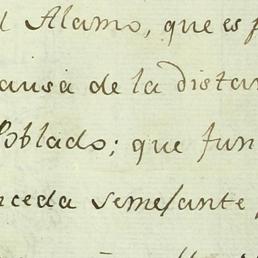 l Alamo, que es p
ausa de la distan
oblado; que fun
nceda semejante